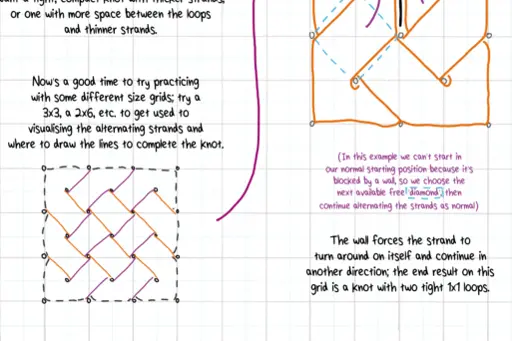 a tight, compact knot with thicker strands,
or one with more space between the loops
and thinner strands.
Now's a good time to try practicing
with some different size grids; try a
3x3, a 2x6, etc. to get used to
visualising the alternating strands and
where to draw the lines to complete the knot.
(In this example we can't start in
our normal starting position because it's
blocked by a wall, so we choose the
next available free 'diamond', then
continue alternating the strands as normal)
The wall forces the strand to
turn around on itself and continue in
another direction; the end result on this
grid is a knot with two tight 1x1 loops.